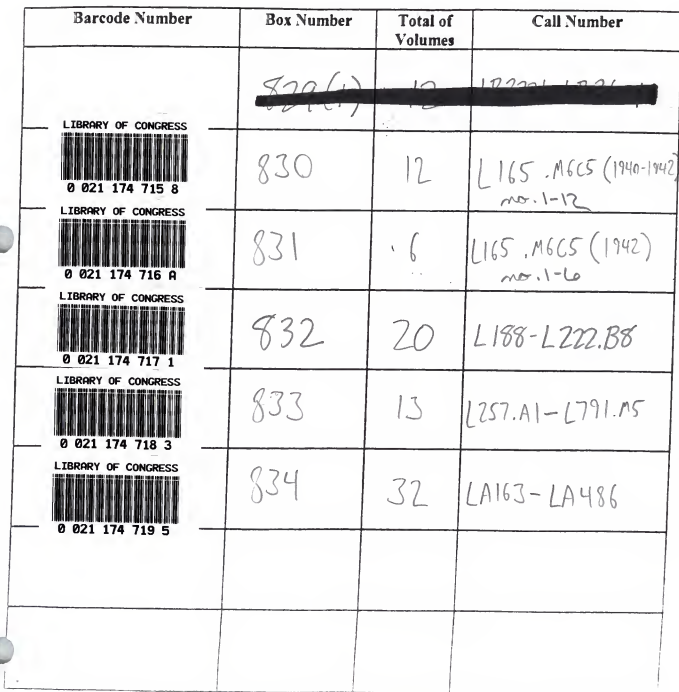 Barcode Number Box Number Total of Volumes Call Number
829(1) 12
LIBRARY OF CONGRESS
0 021 174 715 8
830 12 L165 .M6C5 (1940-1942)
no. 1-12
LIBRARY OF CONGRESS
0 021 174 716 A
831 6 L165 .M6C5 (1942)
no. 1-6
LIBRARY OF CONGRESS
0 021 174 717 1
832 20 L188-L222.B8
LIBRARY OF CONGRESS
0 021 174 718 3
833 13 L257.A1-L791.M5
LIBRARY OF CONGRESS
0 021 174 719 5
834 32 LA163-LA486